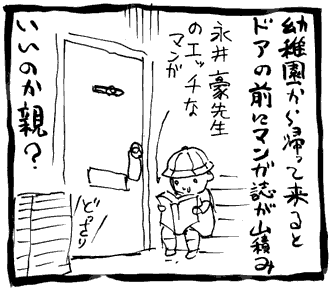 幼稚園から帰って来ると
ドアの前にマンガ誌が山積み
永井豪先生
のエッチな
マンガ
どっさり
いいのか親？